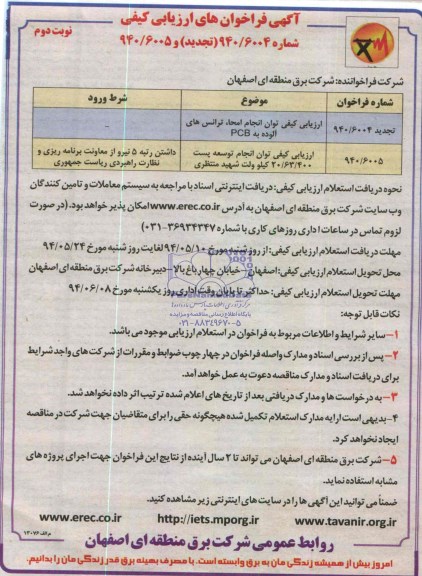 آگهی فراخوان های ارزیابی کیفی
شماره ۹۴۰/۶۰۰۴ (تجدید) و ۹۴۰/۶۰۰۵
نوبت دوم
شرکت فراخواننده: شرکت برق منطقه ای اصفهان
شماره فراخوان
موضوع
شرط ورود
تجدید ۹۴۰/۶۰۰۴
ارزیابی کیفی توان انجام امحاء ترانس های آلوده به PCB
-
۹۴۰/۶۰۰۵
ارزیابی کیفی توان انجام توسعه پست ۲۰/۶۳/۴۰۰ کیلو ولت شهید منتظری
داشتن رتبه ۵ نیرو از معاونت برنامه ریزی و نظارت راهبردی ریاست جمهوری
نحوه دریافت استعلام ارزیابی کیفی: دریافت اینترنتی اسناد با مراجعه به سیستم معاملات و تامین کنندگان
وب سایت شرکت برق منطقه ای اصفهان به آدرس www.erec.co.ir امکان پذیر خواهد بود. (در صورت
لزوم تماس در ساعات اداری روزهای کاری با شماره ۳۶۹۳۴۳۴۷-۰۳۱)
مهلت دریافت استعلام ارزیابی کیفی: از روز شنبه مورخ ۹۴/۰۵/۱۰ لغایت روز شنبه مورخ ۹۴/۰۵/۲۴
محل تحویل استعلام ارزیابی کیفی: اصفهان – خیابان چهارباغ بالا – دبیرخانه شرکت برق منطقه ای اصفهان
مهلت تحویل استعلام ارزیابی کیفی: حداکثر تا پایان وقت اداری روز یکشنبه مورخ ۹۴/۰۶/۰۸
پایگاه اطلاع رسانی مناقصه و مزایده
۰۲۱-۸۸۳۴۹۶۷۰-۵
نکات قابل توجه:
۱– سایر شرایط و اطلاعات مربوط به فراخوان در استعلام ارزیابی موجود می باشد.
۲– پس از بررسی اسناد و مدارک واصله فراخوان در چهار چوب ضوابط و مقررات از شرکت های واجد شرایط
برای دریافت اسناد و مدارک مناقصه دعوت به عمل خواهد آمد.
۳– به درخواست ها و مدارک دریافتی بعد از تاریخ های اعلام شده ترتیب اثر داده نخواهد شد.
۴– بدیهی است ارایه مدارک استعلام تکمیل شده هیچگونه حقی را برای متقاضیان جهت شرکت در مناقصه
ایجاد نخواهد کرد.
۵– شرکت برق منطقه ای اصفهان می تواند تا ۲ سال آینده از نتایج این فراخوان جهت اجرای پروژه های
مشابه استفاده نماید.
ضمناً می توانید این آگهی ها را در سایت های اینترنتی زیر مشاهده کنید.
www.erec.co.ir http://iets.mporg.ir www.tavanir.org.ir
روابط عمومی شرکت برق منطقه ای اصفهان
امروز بیش از همیشه زندگی مان به برق وابسته است. با مصرف بهینه برق قدر زندگی مان را بدانیم.